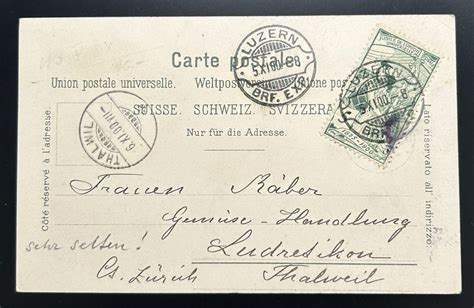 Carte postale.
Union postale universelle. Weltpostverein. Unione postale
SUISSE. SCHWEIZ. SVIZZERA
Nur für die Adresse.
Côté réservé à l'adresse.
riservato all'indirizzo.
LUZERN
5.XI.00.-8
BRF. EXP.
LUZERN
XI.00.-8
BRF.
THALWIL
6.XI.00.
Frauen Räber
Gemüse-Handlung
Ludretikon
Thalweil
Ct. Zürich
sehr selten!